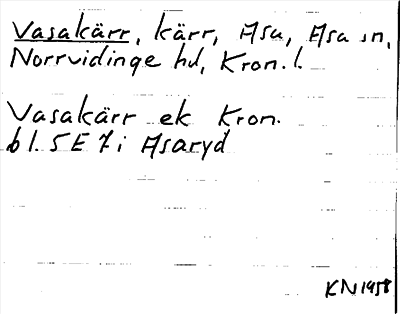 Vasakärr, kärr, Asa, Asa sn,
Norrvidinge hd, Kron. l.
Vasakärr ek Kron.
bl. 5 E 7 i Asaryd
KN 1958